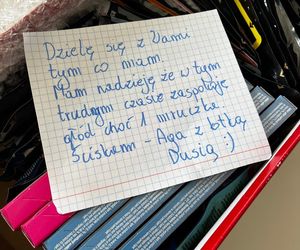 Dzielę się z Wami
tym co miam.
Mam nadzieję że w tym
trudnym czasie zaspokoję
głód choć 1 mruczka
Ściskam - Aga z
Dusią :)